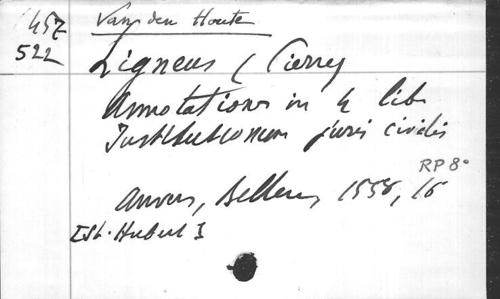 457
522
Van den Houte
Ligneus (Pierre)
Annotationes in 4 lib.
Institutionum juris civilis
RP 8°
Anvers, Bellerus, 1558, 16
Ist. Hubert I